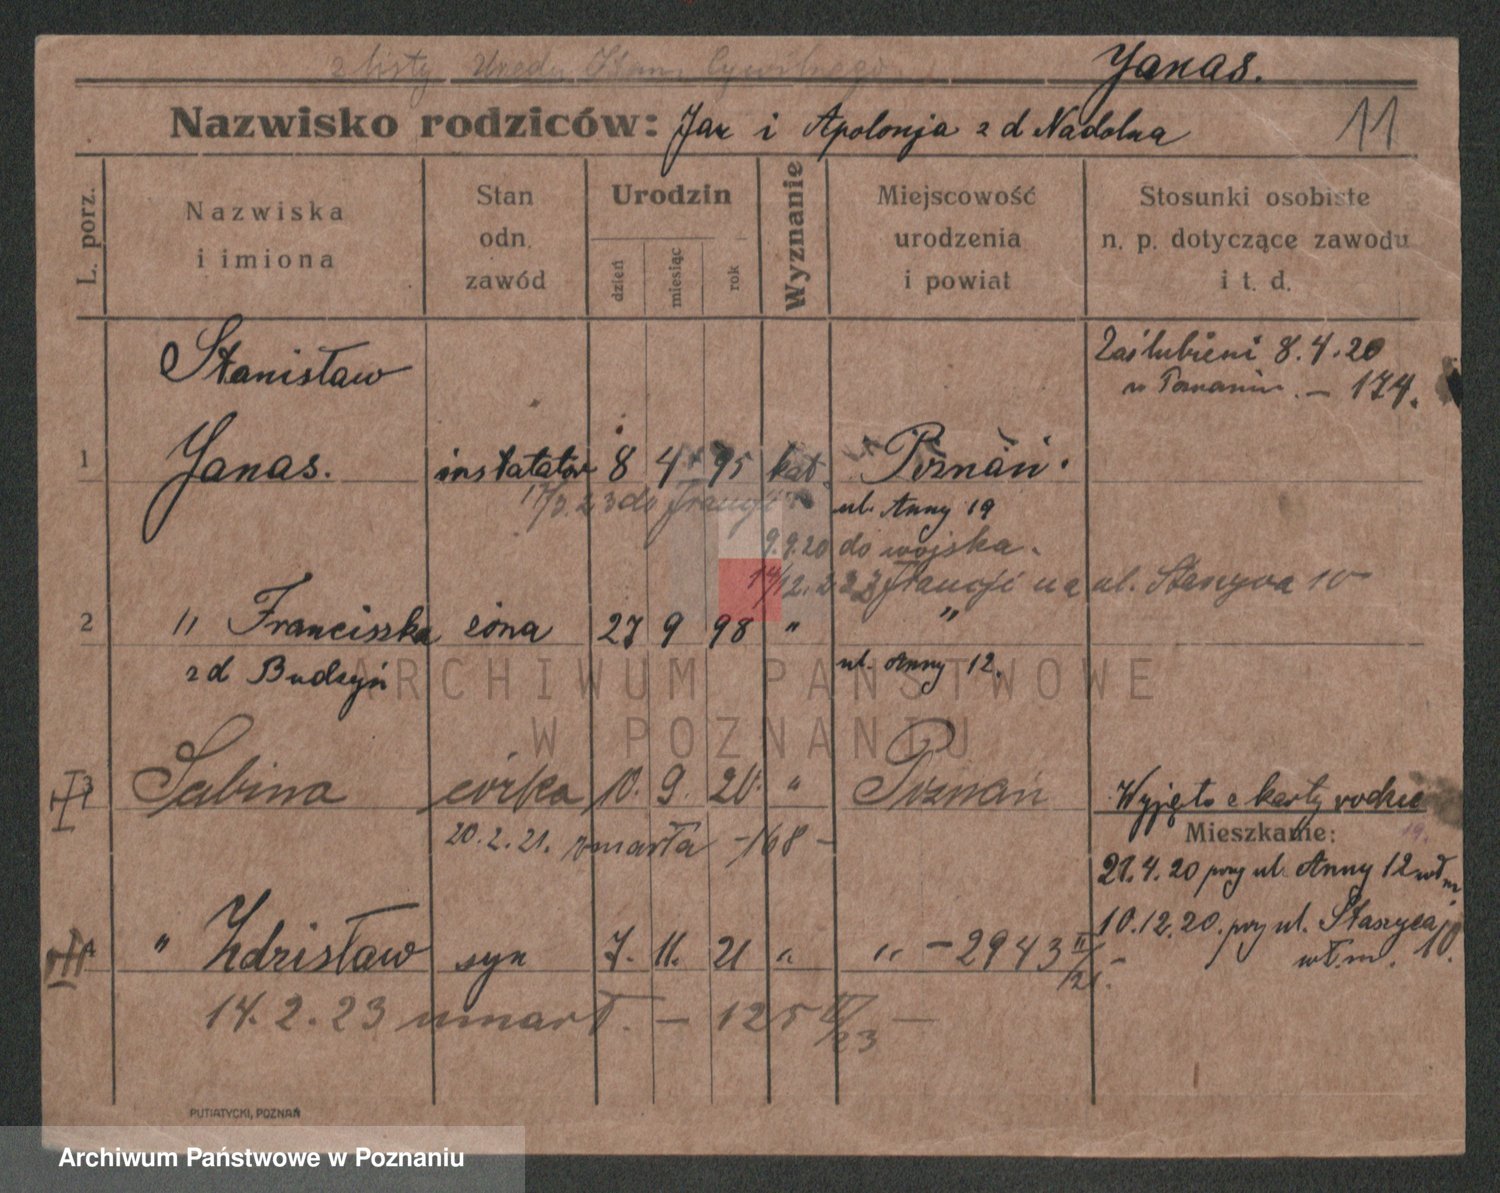 z listy Urzędu Stanu Cywilnego
Janas.
Nazwisko rodziców: Jan i Apolonja z d Nadolna
11
L. porz.
Nazwiska i imiona
Stan odn. zawód
Urodzin
dzień
miesiąc
rok
Wyznanie
Miejscowość urodzenia i powiat
Stosunki osobiste n. p. dotyczące zawodu i t. d.
Stanisław
Zaślubieni 8.4.20
w Poznaniu. — 174.
1 Janas. instalator 8 4 95 kat. Poznań.
17/3.23 do Francji
ul. Anny 19
9.9.20 do wojska.
14/12.22 z Francji na ul. Staszyca 10
2 " Franciszka żona 27 9 98 " "
z d Budzyń
ul. Anny 12.
ARCHIWUM PAŃSTWOWE
W POZNANIU
3 Sabina córka 10. 9. 20. " Poznań
Wyjęto z karty rodzic
20.2.21. zmarła -168-
Mieszkanie:
19.
21.4.20 przy ul. Anny 12 wł m
10.12.20. przy ul. Staszyca 10.
wł.m.
4 " Zdzisław syn 7. 11. 21 " " - 2943 II/21. -
14.2.23 umarł. — 125 II/23 —
PUTIATYCKI, POZNAŃ
Archiwum Państwowe w Poznaniu